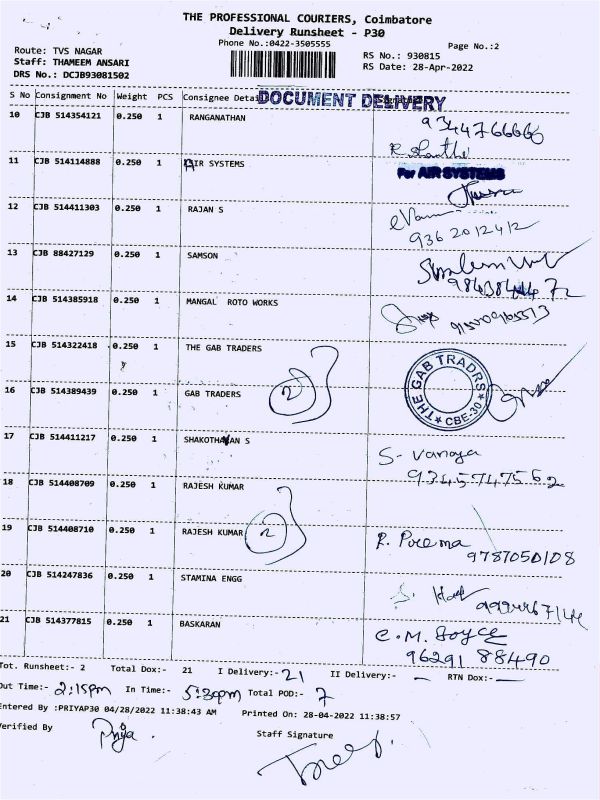 THE PROFESSIONAL COURIERS, Coimbatore
Delivery Runsheet - P30
Phone No.:0422-3505555
Page No.:2
Route: TVS NAGAR
Staff: THAMEEM ANSARI
DRS No.: DCJB93081502
RS No.: 930815
RS Date: 28-Apr-2022
S No Consignment No Weight PCS Consignee Detai
DOCUMENT DELIVERY
10 CJB 514354121 0.250 1 RANGANATHAN
9344766666
11 CJB 514114888 0.250 1 AIR SYSTEMS
For AIR SYSTEMS
12 CJB 514411303 0.250 1 RAJAN S
936 2012412
13 CJB 88427129 0.250 1 SAMSON
14 CJB 514385918 0.250 1 MANGAL ROTO WORKS
15 CJB 514322418 0.250 1 THE GAB TRADERS
THE GAB TRADRS
CBE-30
16 CJB 514389439 0.250 1 GAB TRADERS 2
17 CJB 514411217 0.250 1 SHAKOTHAVAN S
S- Vanaja
9345747562
18 CJB 514408709 0.250 1 RAJESH KUMAR
19 CJB 514408710 0.250 1 RAJESH KUMAR 2
9787050108
20 CJB 514247836 0.250 1 STAMINA ENGG
21 CJB 514377815 0.250 1 BASKARAN
C.M. Joyce
96291 88490
Tot. Runsheet:- 2 Total Dox:- 21 I Delivery:- 21 II Delivery:- - RTN Dox:- -
Out Time:- 2:15pm In Time:- 5:30pm Total POD:- 7
Entered By :PRIYAP30 04/28/2022 11:38:43 AM Printed On: 28-04-2022 11:38:57
Verified By
Priya.
Staff Signature